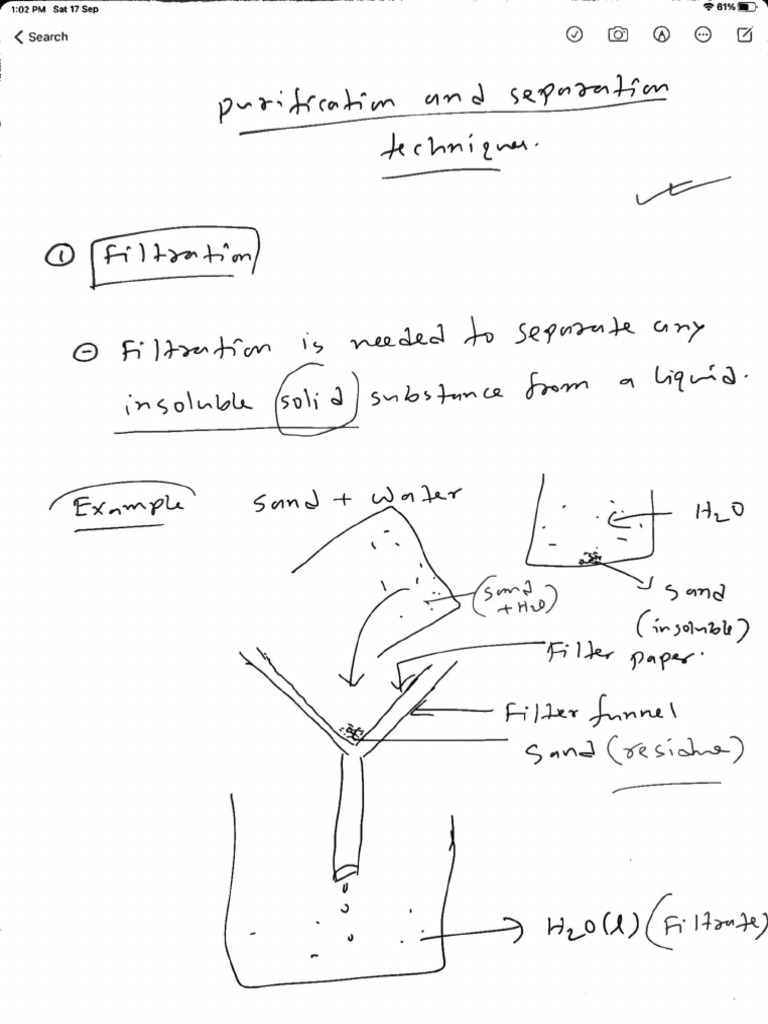 1:02 PM Sat 17 Sep
61%
Search
purification and separation
techniques.
① Filtration
Filtration is needed to separate any
insoluble solid substance from a liquid.
Example
Sand + Water
H₂O
Sand
(insoluble)
(Sand
+ H₂O)
Filter paper.
Filter funnel
Sand (residue)
H₂O(l) (Filtrate)